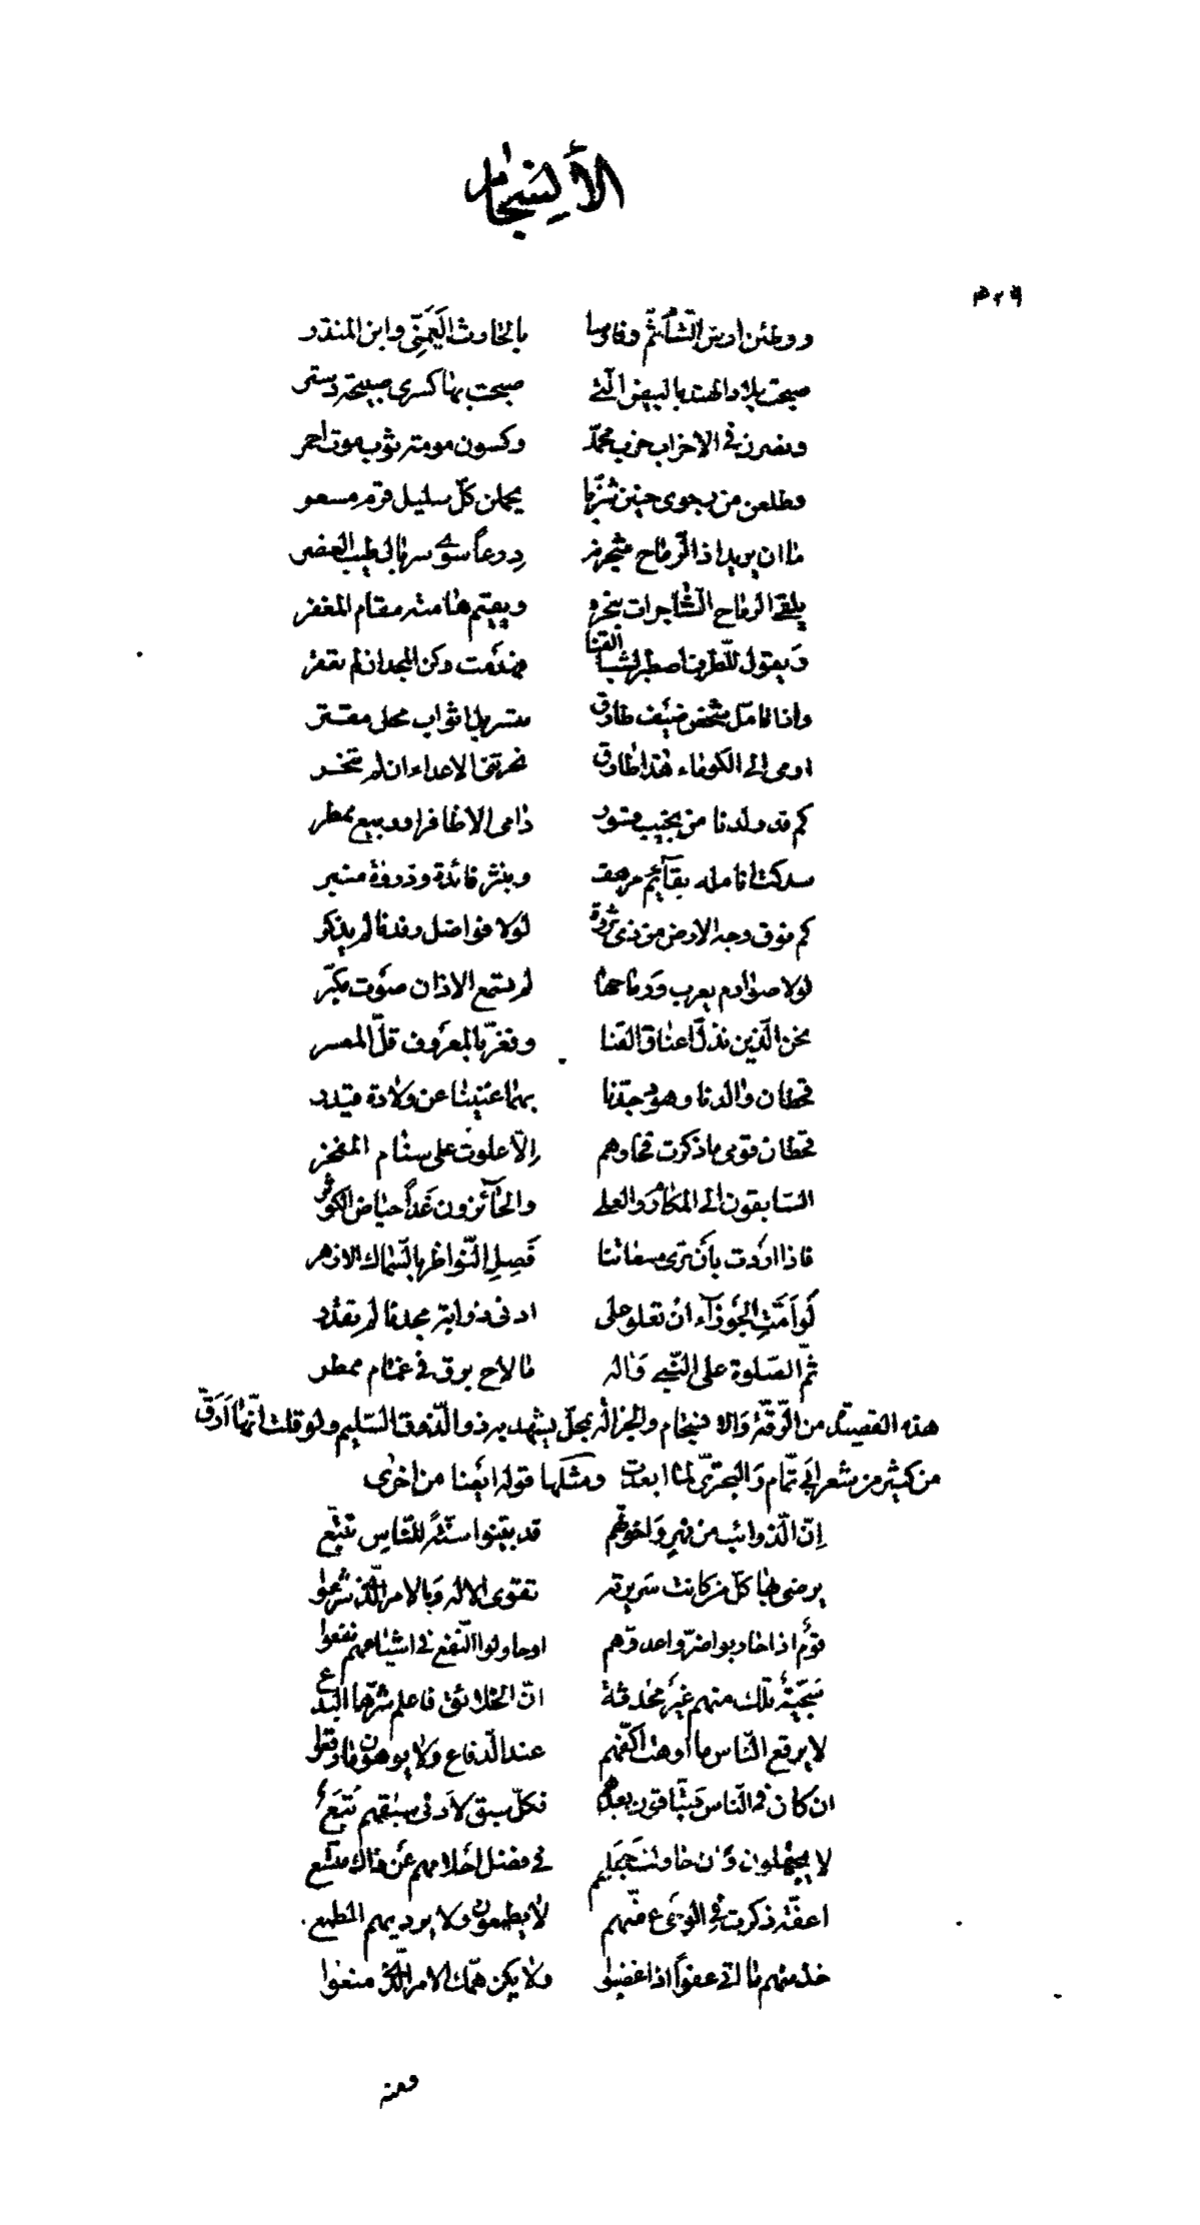 الانسجام
٤٢٩
ووطئن ارض الشأم ثم وفارسا بالحارث اليمني وابن المنذر
صبحت بلاد الهند بالبيض التي صبحت بها كسرى صبيحة دستر
ونصرن في الاحزاب حزب محمد وكسون مؤتة ثوب موت احمر
وطلعن من رجوى حنين شزبا يحملن كل سليل قرم مسعر
ما ان يريد اذا الرماح شجرنه درعاً سوى سربال طيب العنصر
يلقى الرماح الشاجرات بنحره ويقيم هامته مقام المغفر
ويقول للطرف اصطبر لشبا القنا فهدمت ركن المجد ان لم تعقر
واذا تأمل شخص ضيف طارق متسربل اثواب محل مقتر
اومى الى الكوماء هذا طارق نحرتني الاعداء ان لم تنحر
كم قد ولدنا من نجيب قسور دامي الاظافر او ربيع ممطر
سدكت انامله بقائم مرهف وبنشر فائدة وذروة منبر
كم فوق وجه الارض من ذي ثروة لولا فواضل رفدنا لم يذكر
لولا صوارم يعرب ورماحها لم تسمع الاذان صوت مكبر
نحن الذين نذل اعناق القنا ونعز بالمعروف قل المعسر
قحطان والدنا وهود جدنا بهما غنينا عن ولادة قيدر
قحطان قومي ما ذكرت فخارهم إلا علوت على سنام المفخر
السابقون الى المكارم والعلى والحائزون غداً حياض الكوثر
فاذا اردت بأن ترى مسعاتنا فصل النواظر بالسماك الازهر
لو امت الجوزاء ان تعلو على ادنى ذوابة مجدنا لم تقدر
ثم الصلوة على النبي وآله ما لاح برق في غمام ممطر
هذه القصيدة من الرقة والانسجام والجزالة بمحل يشهد به ذو الذوق السليم ولو قلت انها ارق
من كثير من شعر ابي تمام والبحتري لما ابعدت ومثلها قوله ايضا من اخرى
إن الذوائب من فهر واخوتهم قد بينوا سنة للناس تتبع
يرضى بها كل من كانت سريرته تقوى الاله وبالامر الذي شرعوا
قوم اذا حاربوا ضروا عدوهم او حاولوا النفع في اشياعهم نفعوا
سجية تلك منهم غير محدثة ان الخلائق فاعلم شرها البدع
لا يرقع الناس ما اوهت اكفهم عند الدفاع ولا يوهون ما رقعوا
ان كان في الناس سباقون بعدهم فكل سبق لادنى سبقهم تبع
لا يجهلون وان حاولت جهلهم في فضل احلامهم عن ذاك متسع
اعفة ذكرت في الوحي عفتهم لا يطمعون ولا يرديهم الطمع
خذ منهم ما اتى عفواً اذا غضبوا ولا يكن همك الامر الذي منعوا
ومنه